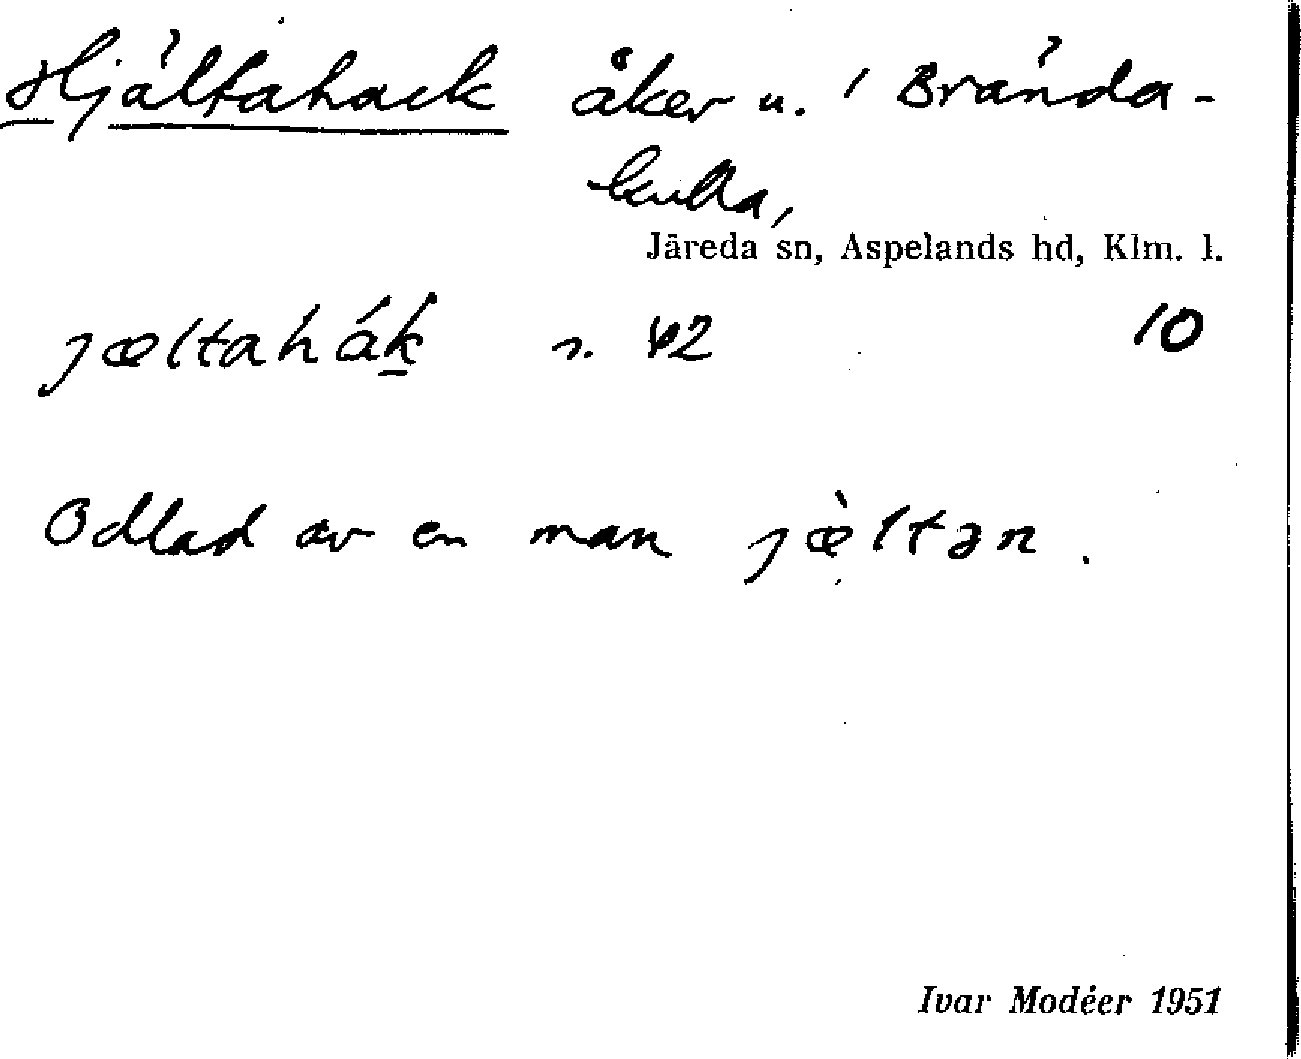 Hjältahack åker u. i Brända-
kulla,
Järeda sn, Aspelands hd, Klm. l.
jæltahák n. 42 10
Odlad av en man jæ̀ltən.
Ivar Modéer 1951